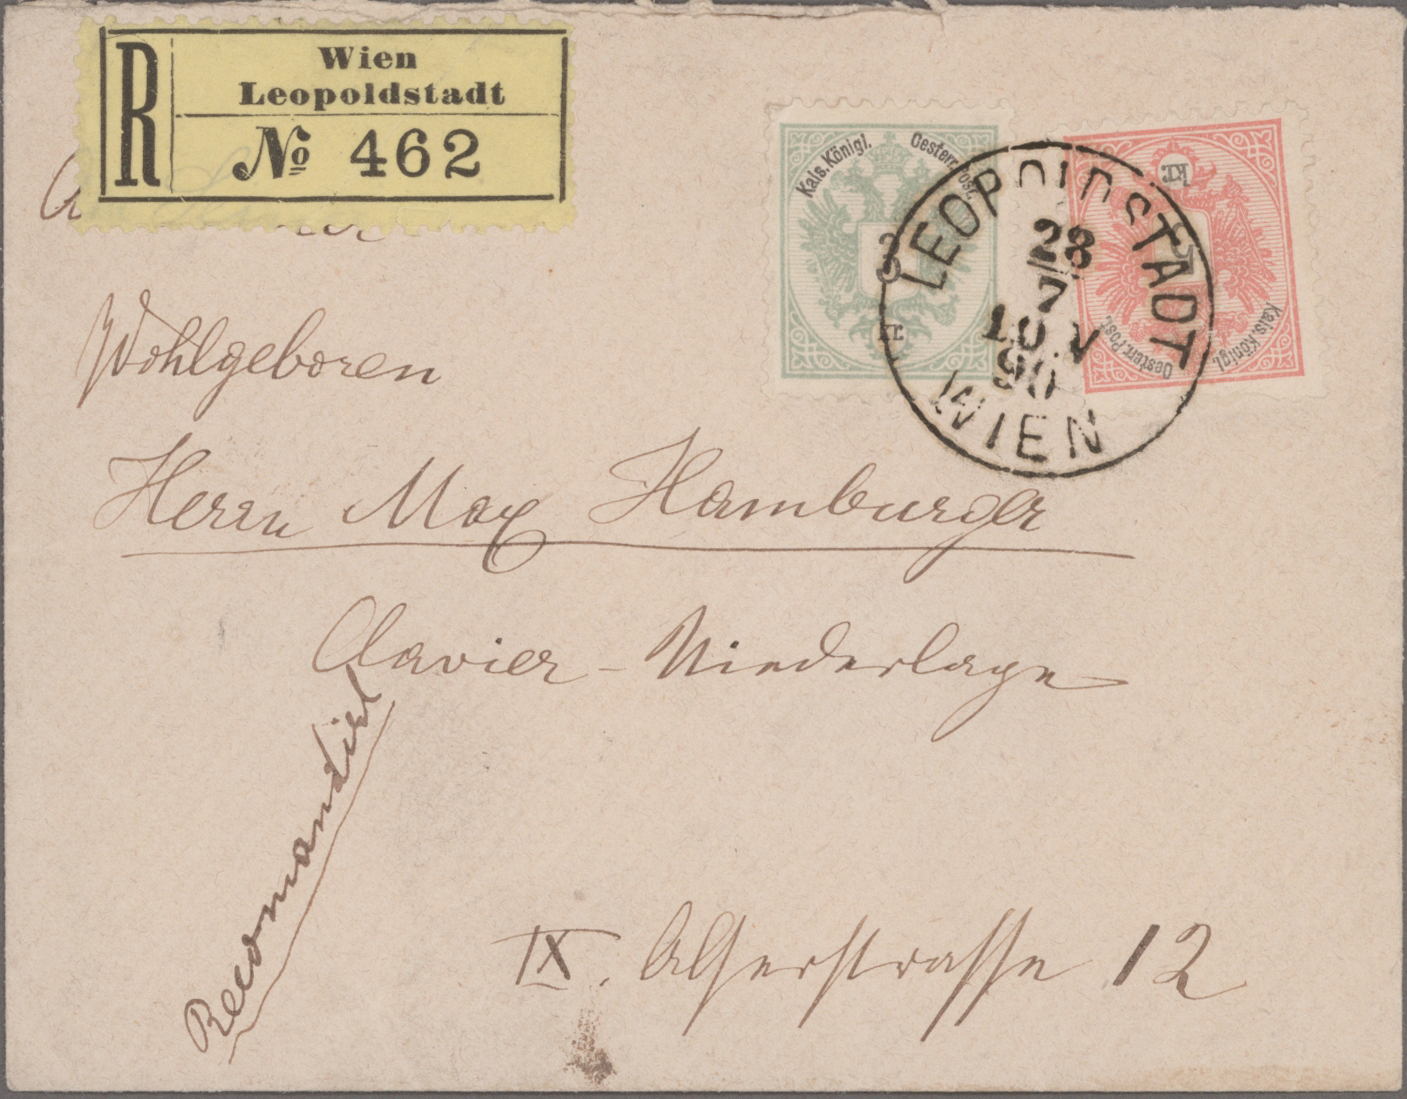 R
Wien
Leopoldstadt
№ 462
Kais. Königl. Oesterr. Post.
3
kr.
LEOPOLDSTADT
28
7
10 V
90
WIEN
kr.
5
Kais. Königl. Oesterr. Post.
Wohlgeboren
Herrn Max Hamburger
Clavier-Niederlage
Recomandirt
IX. Alserstrasse 12